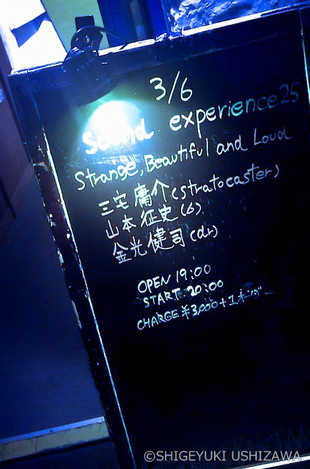 3/6
Sound experience25
Strange, Beautiful and Loud
三宅庸介(stratocaster)
山本征史(b)
金光健司(dr)
OPEN 19:00
START 20:00
CHARGE ¥3,000+1オーダー
©SHIGEYUKI USHIZAWA